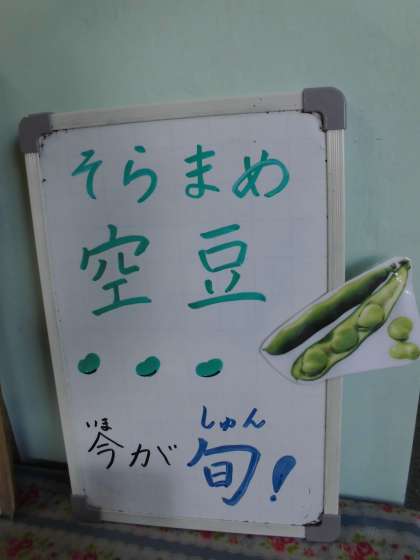 そらまめ
空豆
いま しゅん
今が旬!